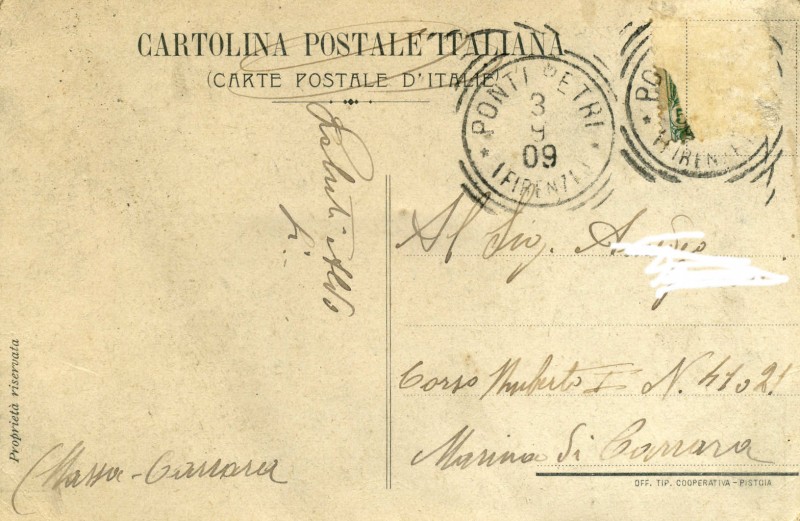 CARTOLINA POSTALE ITALIANA
(CARTE POSTALE D'ITALIE)
PONTI PETRI
3
9
09
(FIRENZE)
PO
5
FIRENZE
Saluti Aldo
Al Sig.
Corso Umberto I° N. 41
Marina di Carrara
(Massa-Carrara
Proprietà riservata
OFF. TIP. COOPERATIVA - PISTOIA